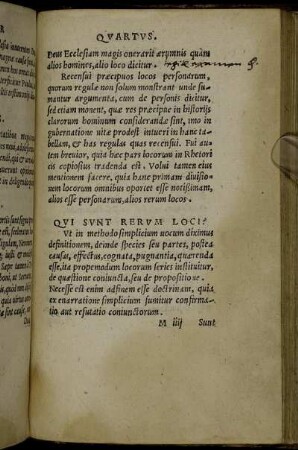 QVARTVS.
Deus Ecclesiam magis onerarit ærumnis quàm
alios homines, alio loco dicitur.
Recensui præcipuos locos personarum,
quorum regulæ non solum monstrant unde su-
mantur argumenta, cum de personis dicitur,
sed etiam monent, quæ res propriæ in historijs
clarorum hominum considerandæ sint, imo in
gubernatione uitæ prodest intueri in hanc tabe-
llam, & has regulas quas recensui. Fui au-
tem breuior, quia hæc pars locorum in Rhetori
cis copiosius tradenda est. Volui tamen eius
mentionem facere, quia hanc primam diuisio-
nem locorum omnibus oportet esse notißimam,
alios esse personarum, alios rerum locos.
QVI SVNT RERVM LOCI?
Vt in methodo simplicium uocum diximus
definitionem, deinde species seu partes, postea
causas, effectus, cognata, pugnantia, quærenda
esse, ita propemodum locorum series instituitur,
de quæstione coniuncta, seu de propositione.
Necesse est enim adfinem esse doctrinam, quia
ex enarratione simplicium sumitur confirma-
tio, aut refutatio coniunctorum.
M iiij Sunt